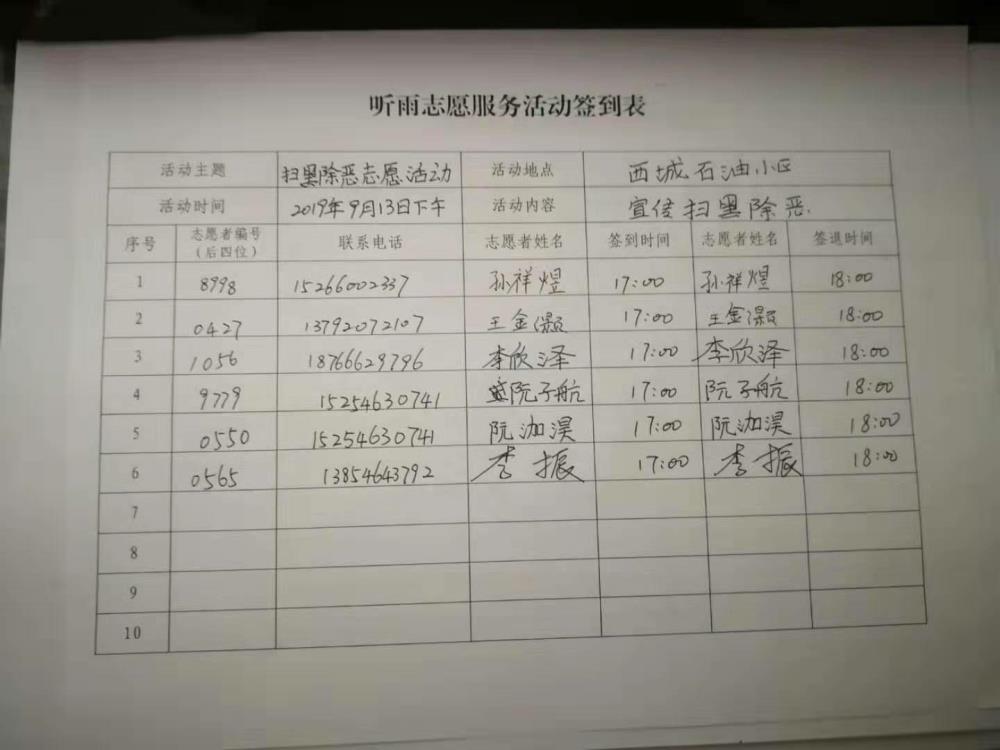 听雨志愿服务活动签到表
活动主题 扫黑除恶志愿活动 活动地点 西城石油小区
活动时间 2019年9月13日下午 活动内容 宣传扫黑除恶.
序号 志愿者编号（后四位） 联系电话 志愿者姓名 签到时间 志愿者姓名 签退时间
1 8998 15266002337 孙祥煜 17:00 孙祥煜 18:00
2 0427 13792072107 王金灏 17:00 王金灏 18:00
3 1056 18766629796 李欣泽 17:00 李欣泽 18:00
4 9779 15254630741 阮子航 17:00 阮子航 18:00
5 0550 15254630741 阮泇淏 17:00 阮泇淏 18:00
6 0565 13854643792 李振 17:00 李振 18:00
7
8
9
10